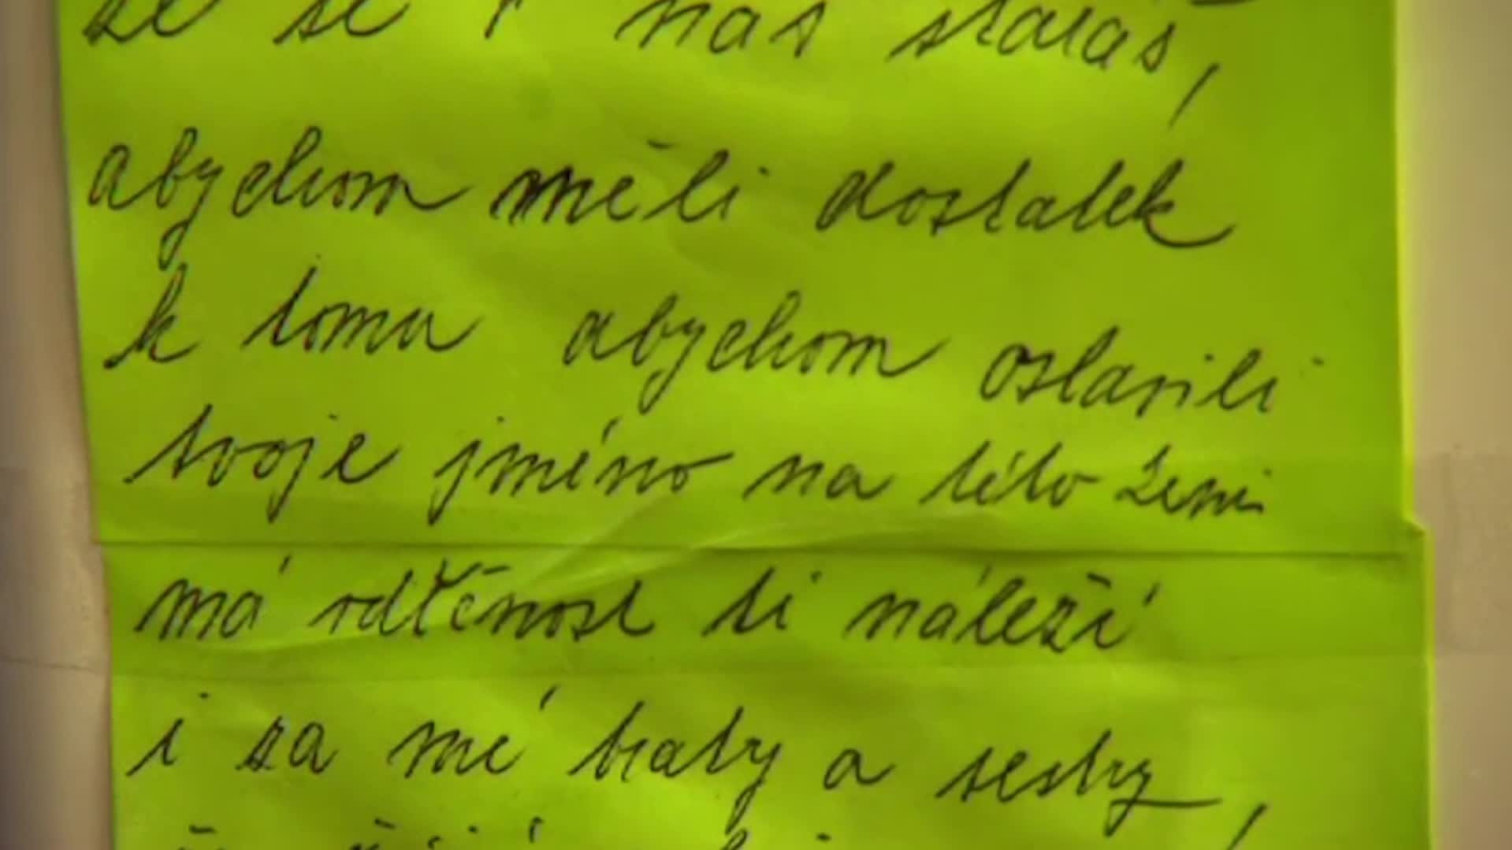 že se i nás staráš,
abychom měli dostatek
k tomu abychom oslavili
tvoje jméno na této zemi
má vděčnost ti náleží
i za mé braty a sestry,